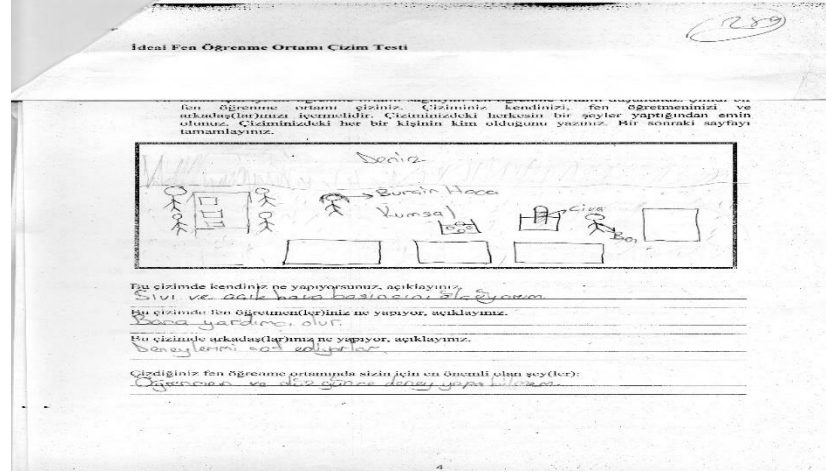 289
İdeal Fen Öğrenme Ortamı Çizim Testi
fen öğrenme ortamı çiziniz. Çiziminiz kendinizi, fen öğretmeninizi ve
arkadaş(lar)ınızı içermelidir. Çiziminizdeki herkesin bir şeyler yaptığından emin
olunuz. Çiziminizdeki her bir kişinin kim olduğunu yazınız. Bir sonraki sayfayı
tamamlayınız.
Deniz
Bursin Hoca
Kumsal
Civa
Ben
Bu çizimde kendiniz ne yapıyorsunuz, açıklayınız.
Sıvı ve açık hava basıncını ölçüyorum.
Bu çizimde fen öğretmen(ler)iniz ne yapıyor, açıklayınız.
Bana yardımcı olur.
Bu çizimde arkadaş(lar)ınız ne yapıyor, açıklayınız.
Deneylerimi not ediyorlar.
Çizdiğiniz fen öğrenme ortamında sizin için en önemli olan şey(ler):
Öğrenmem ve düzgünce deney yapabilmem.
4